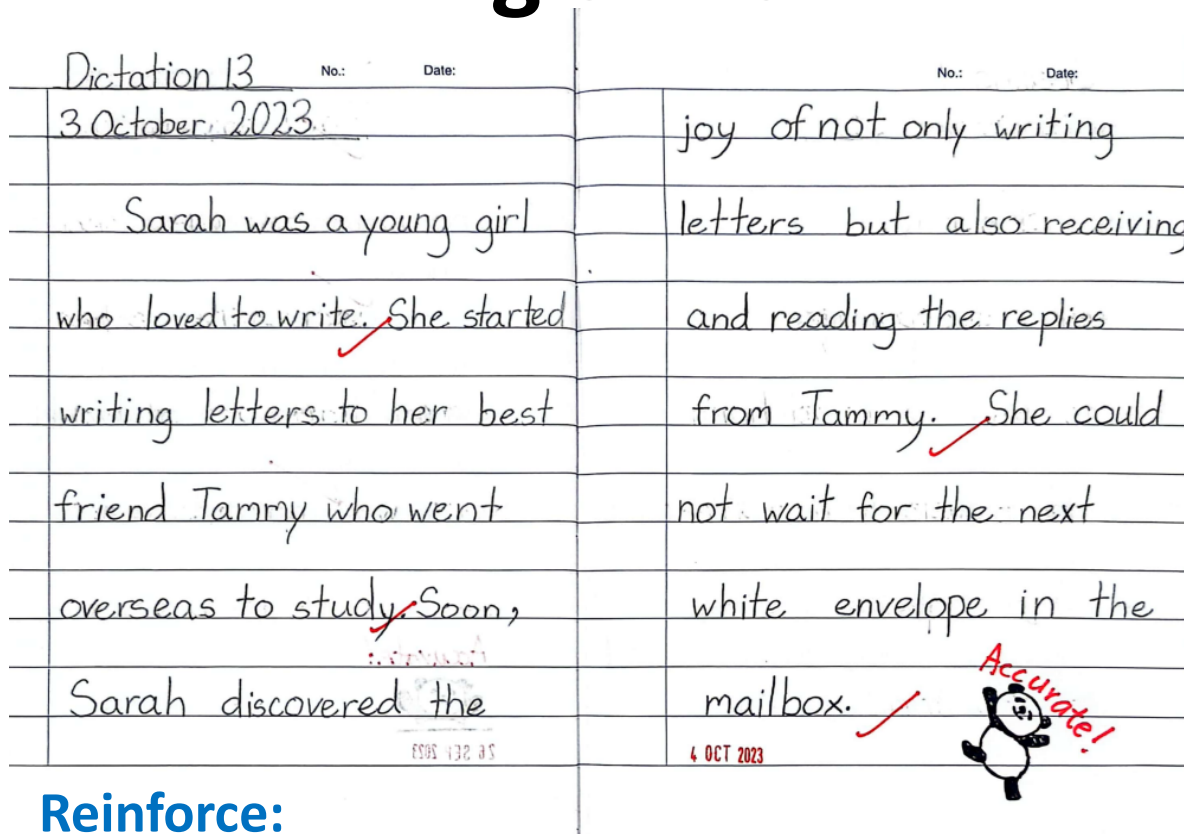 Dictation 13 No.: Date:
3 October 2023
Sarah was a young girl
who loved to write. She started
writing letters to her best
friend Tammy who went
overseas to study. Soon,
Sarah discovered the
26 SEP 2023
No.: Date:
joy of not only writing
letters but also receiving
and reading the replies
from Tammy. She could
not wait for the next
white envelope in the
mailbox.
Accurate!
4 OCT 2023
Reinforce: